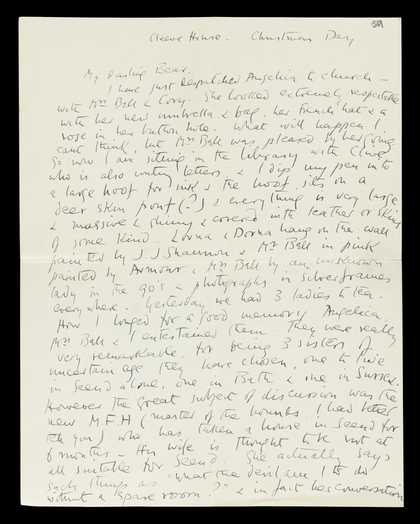 59
Cleeve House. Christmas Day
My Darling Bear.
I have just despatched Angelica to church –
with Mrs Bell & Cory. She looked extremely respectable
with her new umbrella & bag, her French hat & a
rose in her button hole. What will happen I
cant think, but Mrs Bell was pleased by her going.
So now I am sitting in the library with Clive
who is also writing letters & I dip my pen into
a large hoof for ink & the hoof sits on a
deer skin pouf (?) & everything is very large
& massive & shiny & covered with leather or skins
of some kind. Lorna & Dorna hang on the wall
painted by J.J. Shannon & Mr Bell in pink
painted by Armour, Mrs Bell by an unknown
lady in the 90's – photographs in silver frames
everywhere. Yesterday we had 3 ladies to tea.
How I longed for a good memory. Angelica
Mrs Bell & I entertained them. They were really
very remarkable. for being 3 sisters of
uncertain age they have chosen, one to live
in Seend alone, one in Bath & one in Sussex.
However the great subject of discussion was the
new M.F.H (master of the hounds I had better
tell you) who has taken a house in Seend for
6 months – His wife is thought to be not at
all suitable for Seend. She actually says
such things as "what the devil am I to do
without a spare room?" & in fact her conversation